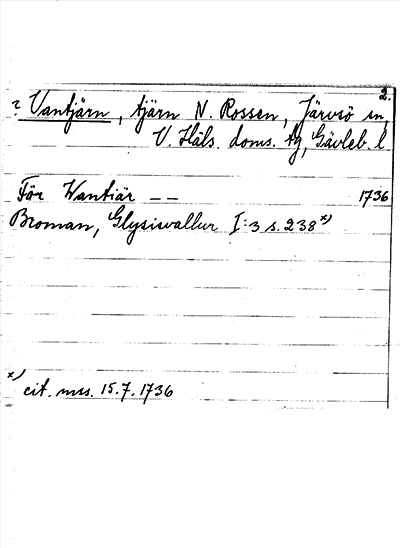 2.
? Vantjärn, tjärn N. Rossen, Järvsö sn,
V. Häls. doms. tg, Gävleb. l
För Wantiär — — 1736
Broman, Glysisvallur I:3 s. 238 x)
x) cit. mss. 15.7.1736